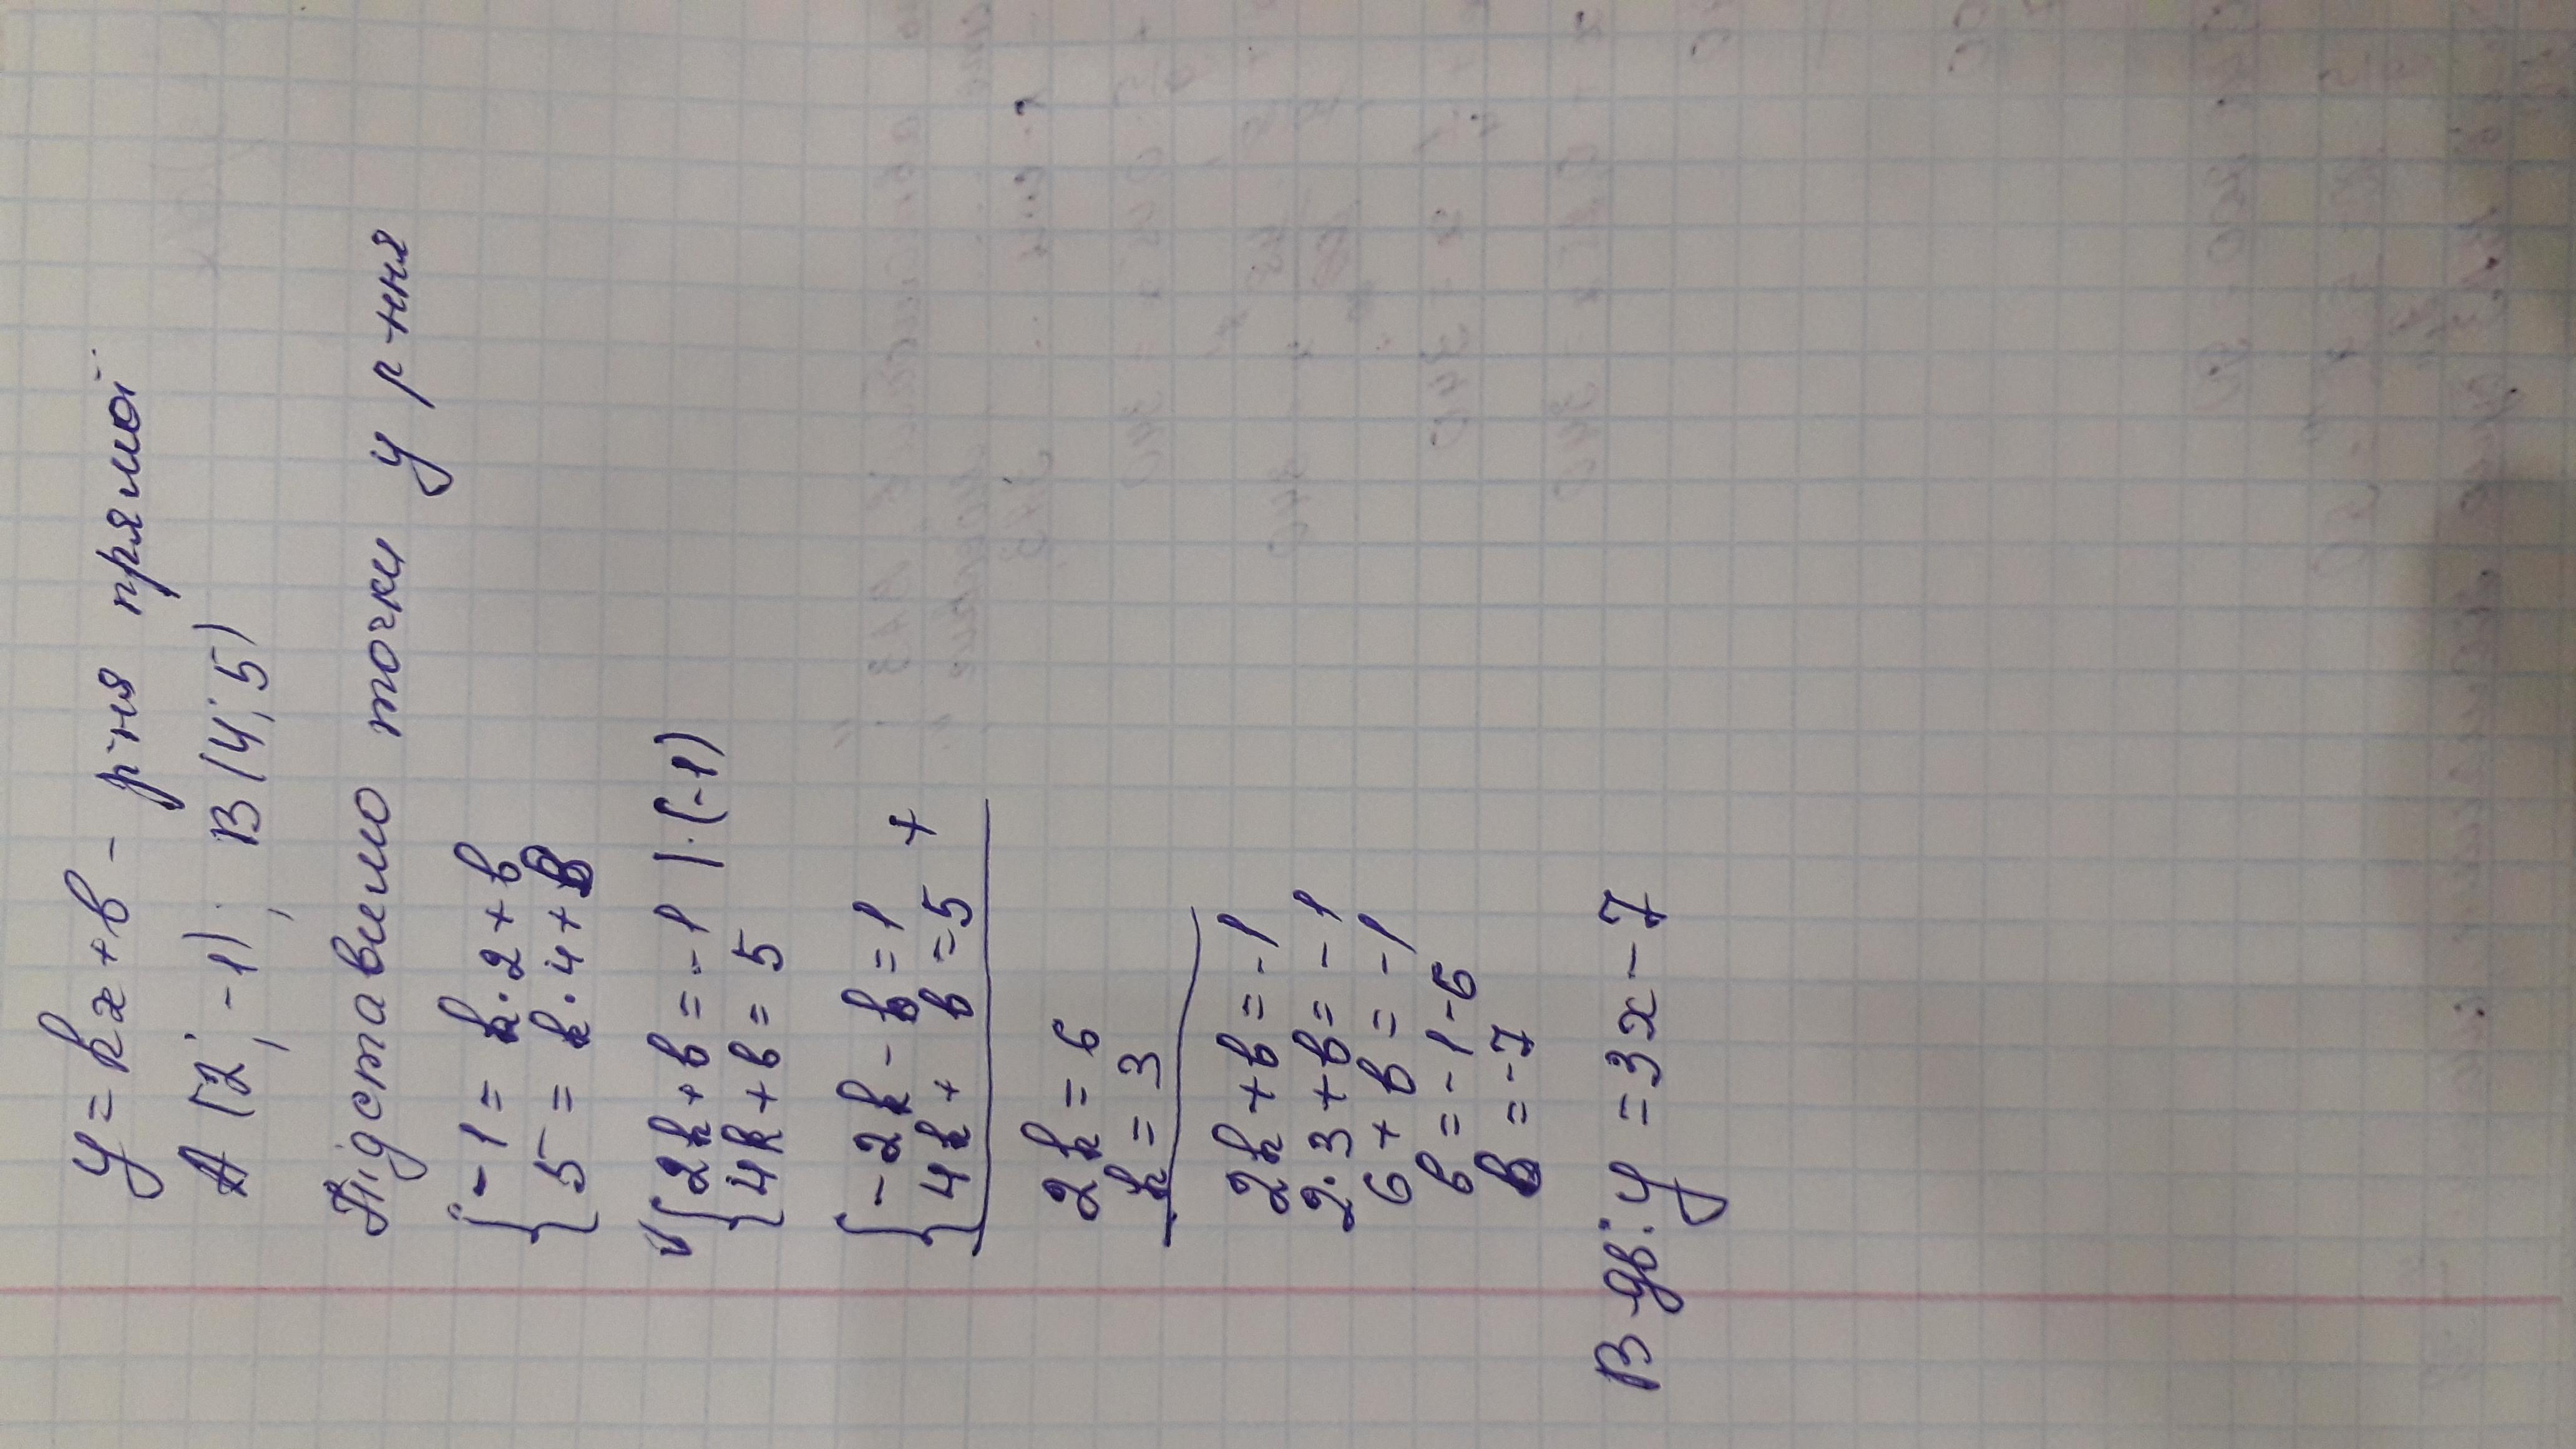 y = kx + b - р-ня прямої
A (2; -1); B (4; 5)
Підставимо точки у р-ння
{ -1 = k · 2 + b
5 = k · 4 + b
{ 2k + b = -1 | · (-1)
4k + b = 5
{ -2k - b = 1
4k + b = 5 +
2k = 6
k = 3
2k + b = -1
2 · 3 + b = -1
6 + b = -1
b = -1 - 6
b = -7
В-дь: y = 3x - 7